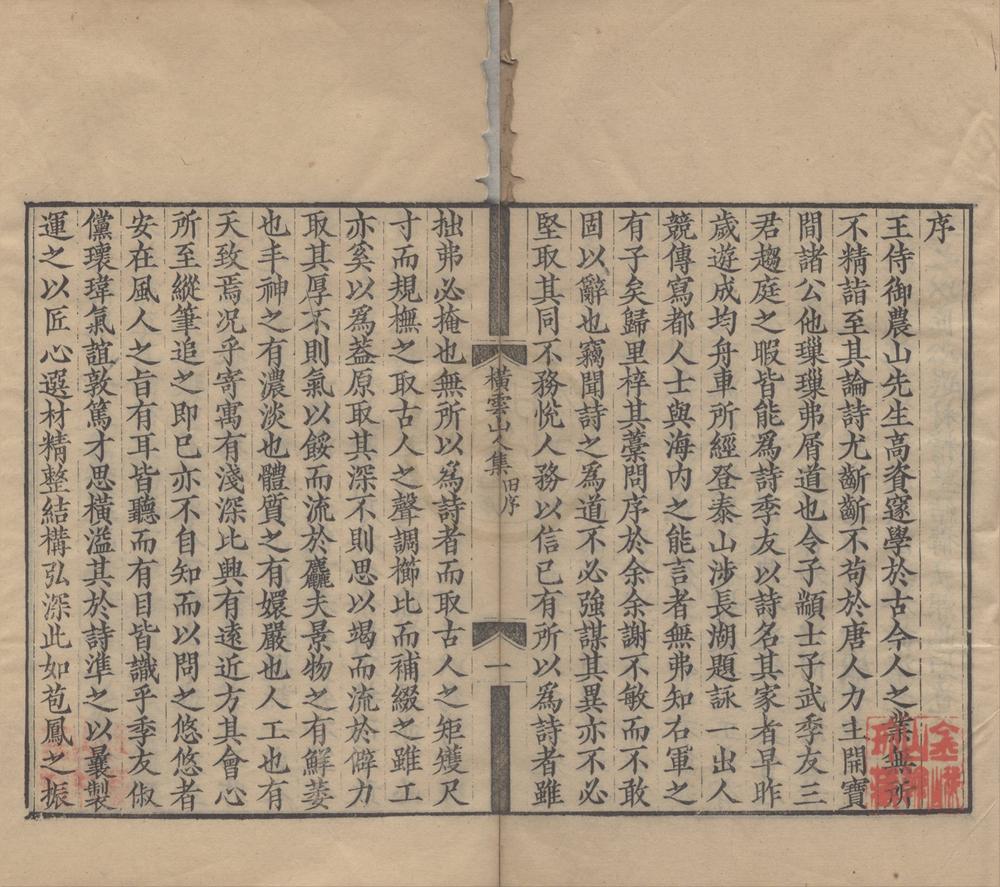 序
王侍御農山先生高資邃學於古今人之業無所
不精詣至其論詩尤齗齗不茍於唐人力主開寶
間諸公他璅璅弗屑道也令子顓士子武季友三
君趨庭之暇皆能為詩季友以詩名其家者早昨
歲遊成均舟車所經登泰山涉長湖題詠一出人
競傳寫都人士與海內之能言者無弗知右軍之
有子矣歸里梓其藳問序於余余謝不敏而不敢
固以辭也竊聞詩之為道不必強謀其異亦不必
堅取其同不務悅人務以信己有所以為詩者雖
橫雲山人集 旧序 一
拙弗必掩也無所以為詩者而取古人之矩矱尺
寸而規橅之取古人之聲調櫛比而補綴之雖工
亦奚以為葢原取其深不則思以竭而流於僻力
取其厚不則氣以餒而流於麤夫景物之有鮮萎
也丰神之有濃淡也體質之有嬛嚴也人工也有
天致焉况乎寄寓有淺深比興有遠近方其會心
所至縱筆追之即已亦不自知而以問之悠悠者
安在風人之旨有耳皆聽而有目皆識乎季友俶
儻瓌瑋氣誼敦篤才思橫溢其於詩準之以曩製
運之以匠心選材精整結構弘深此如苞鳳之振